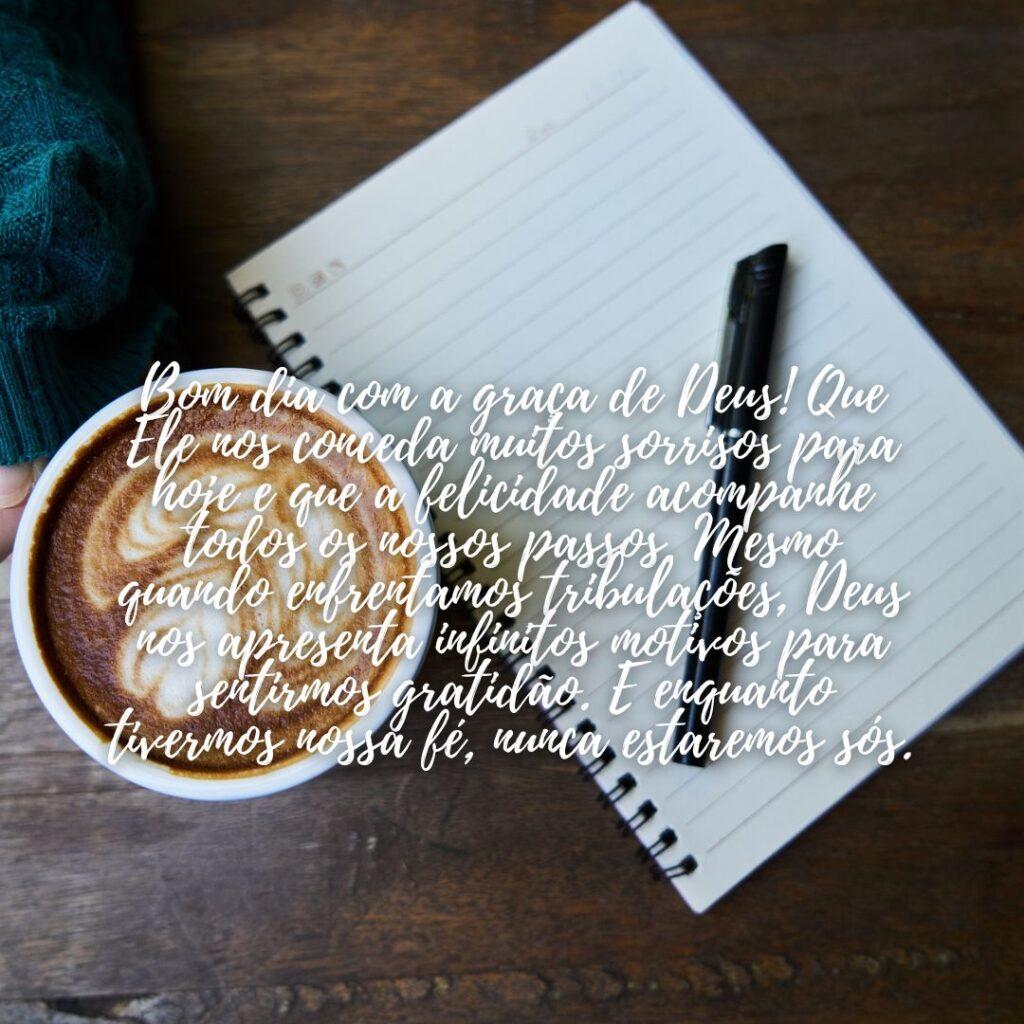 Bom dia com a graça de Deus! Que
Ele nos conceda muitos sorrisos para
hoje e que a felicidade acompanhe
todos os nossos passos. Mesmo
quando enfrentamos tribulações, Deus
nos apresenta infinitos motivos para
sentirmos gratidão. E enquanto
tivermos nossa fé, nunca estaremos sós.